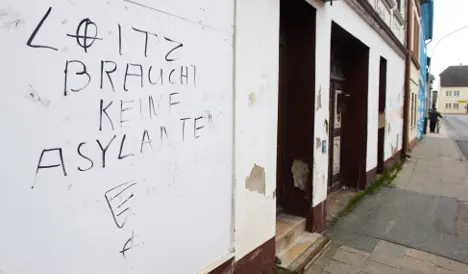 LOITZ
BRAUCHT
KEINE
ASYLANTEN